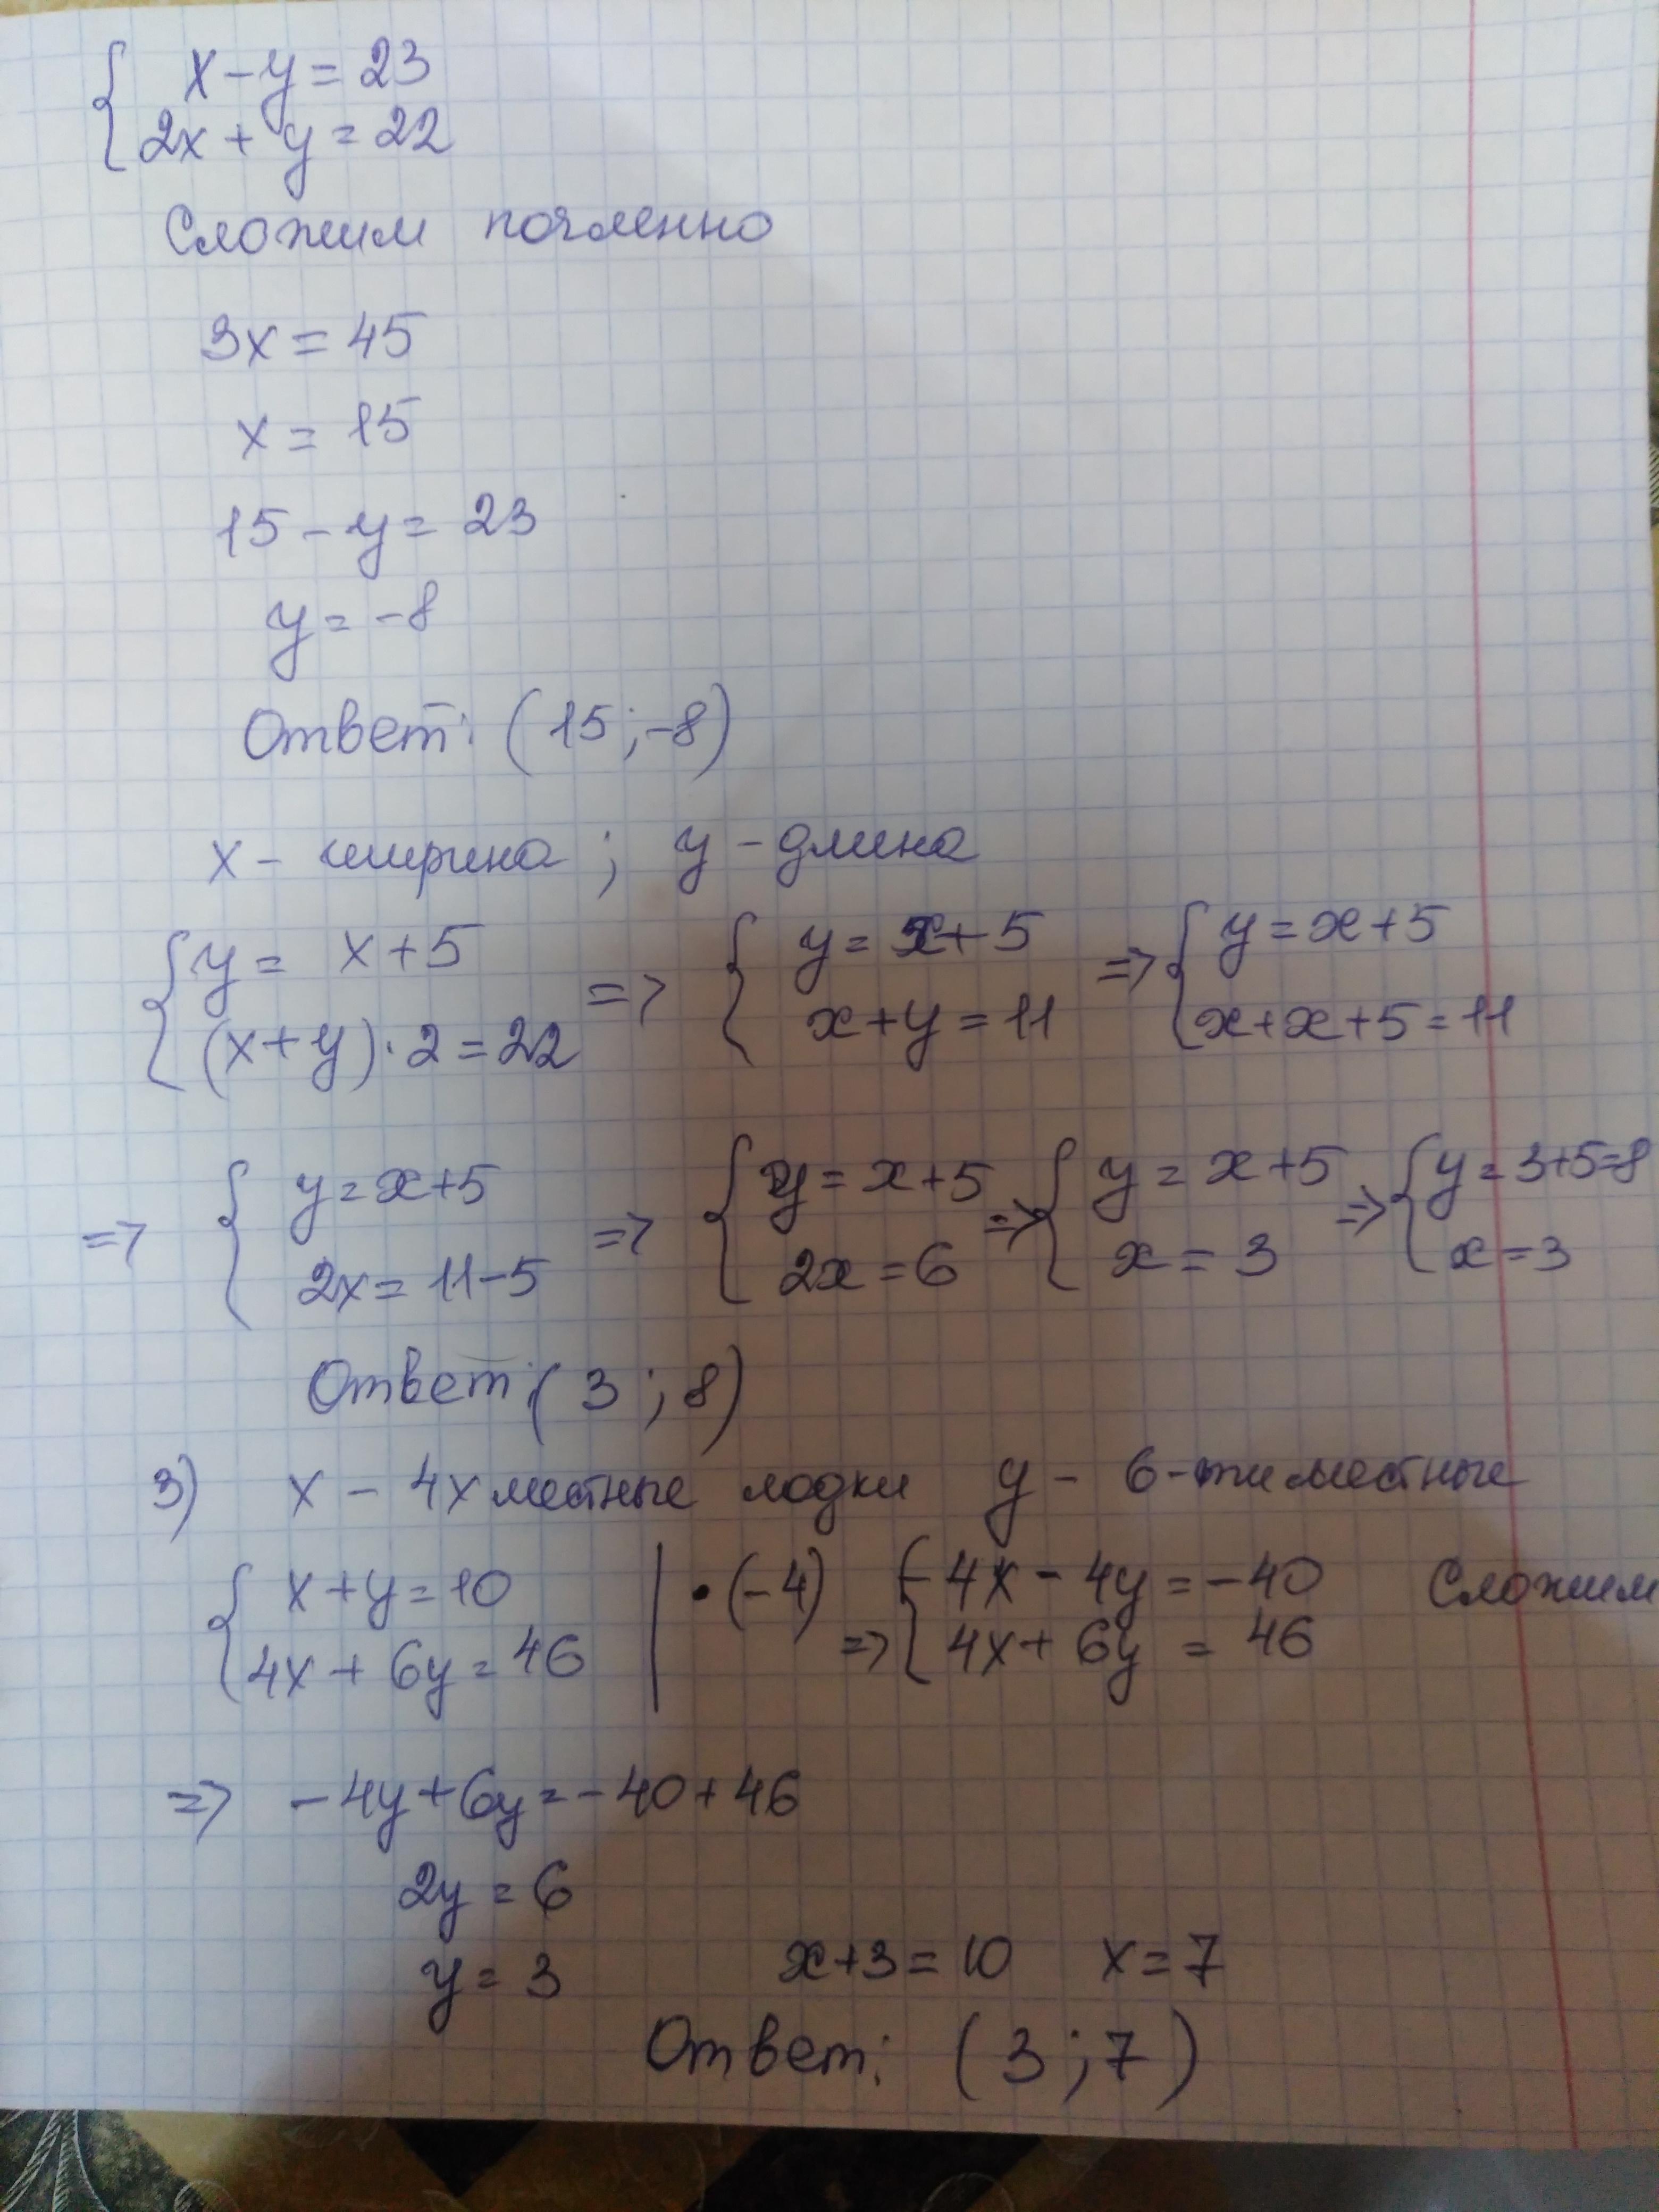 { x - y = 23
2x + y = 22
Сложим почленно
3x = 45
x = 15
15 - y = 23
y = -8
Ответ: (15; -8)
x - ширина ; y - длина
{ y = x + 5
(x + y) · 2 = 22 => { y = x + 5
x + y = 11 => { y = x + 5
x + x + 5 = 11
=> { y = x + 5
2x = 11 - 5 => { y = x + 5
2x = 6 => { y = x + 5
x = 3 => { y = 3 + 5 = 8
x = 3
Ответ: (3 ; 8)
3) x - 4х местные лодки y - 6-ти местные
{ x + y = 10 | · (-4)
4x + 6y = 46 => { -4x - 4y = -40
4x + 6y = 46 Сложим
=> -4y + 6y = -40 + 46
2y = 6
y = 3 x + 3 = 10 x = 7
Ответ: (3 ; 7)